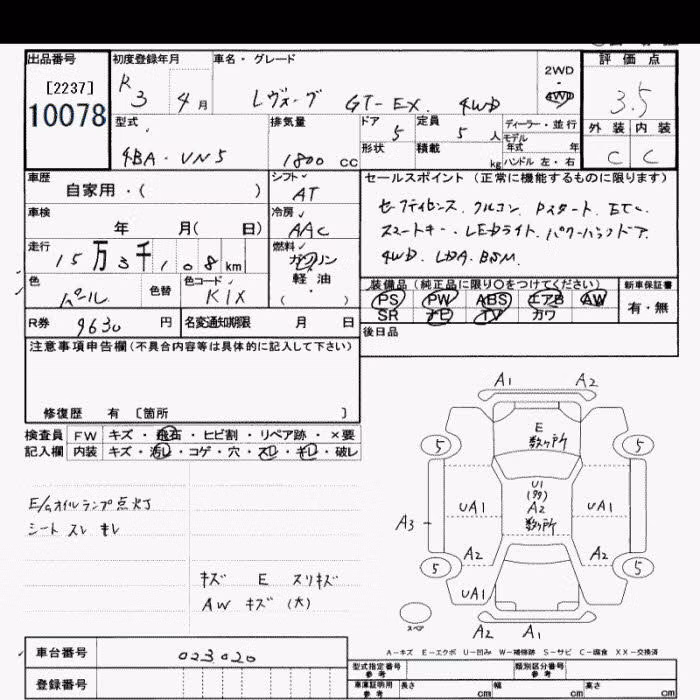 出品番号 初度登録年月 車名・グレード 評価点
[2237] R3 4月 レヴォーグ GT-EX. 4WD 2WD 4WD 3.5
10078
型式 排気量 ドア 定員 ディーラー・並行 外装 内装
4BA-VN5 1800 cc 5 5人 モデル年式 年 C C
形状 積載 kg ハンドル 左・右
車歴 シフト セールスポイント(正常に機能するものに限ります)
自家用・( ) AT
車検 冷房 セーフティセンス. クルコン. Pスタート. ETC.
年 月( 日) AAC スマートキー. LEDライト. パワーバックドア.
走行 燃料 4WD. LDA. BSM.
15万3千108km ガソリン
色 色替 色コード 軽・油 装備品(純正品に限り○をつけてください) 新車保証書
パール K1X ( ) PS PW ABS エアB AW 有・無
SR ナビ TV カワ
R券 9630円 名変通知期限 月 日 後日品
注意事項申告欄(不具合内容等は具体的に記入して下さい)
修復歴 有 〔箇所 〕
検査員 FW キズ・飛石・ヒビ割・リペア跡・×要
記入欄 内装 キズ・汚レ・コゲ・穴・スレ・キレ・破レ
E/Gオイルランプ点灯
シート スレ キレ
キズ E スリキズ
AW キズ (大)
A1 A2
E
数ヶ所
5 5
U1
A2
数ヶ所
UA1 UA1
A3
A2 A2
5 5
UA1
スペア
A2 A1
A-キズ E-エクボ U-凹み W-補修跡 S-サビ C-腐食 XX-交換済
車台番号 023020
型式指定番号 参考 類別区分番号 参考
登録番号 車庫証明用 参考 長さ cm 幅 cm 高さ cm